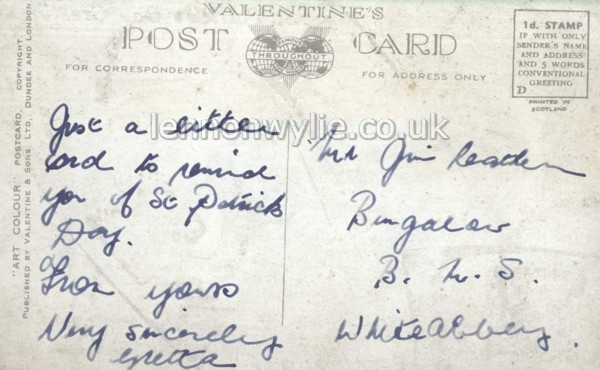 VALENTINE'S
POST CARD
THROUGHOUT
FOR CORRESPONDENCE
FOR ADDRESS ONLY
1d. STAMP
IF WITH ONLY
SENDER'S NAME
AND ADDRESS
AND 5 WORDS
CONVENTIONAL
GREETING
D
PRINTED IN
SCOTLAND
"ART COLOUR" POSTCARD. COPYRIGHT.
PUBLISHED BY VALENTINE & SONS, LTD., DUNDEE AND LONDON
lennonwylie.co.uk
Just a
card to remind
you of St Patricks
Day.
From yours
Very sincerely
Gretta
Mr Jim
Bungalow
B. M. S.
Whiteabbey.